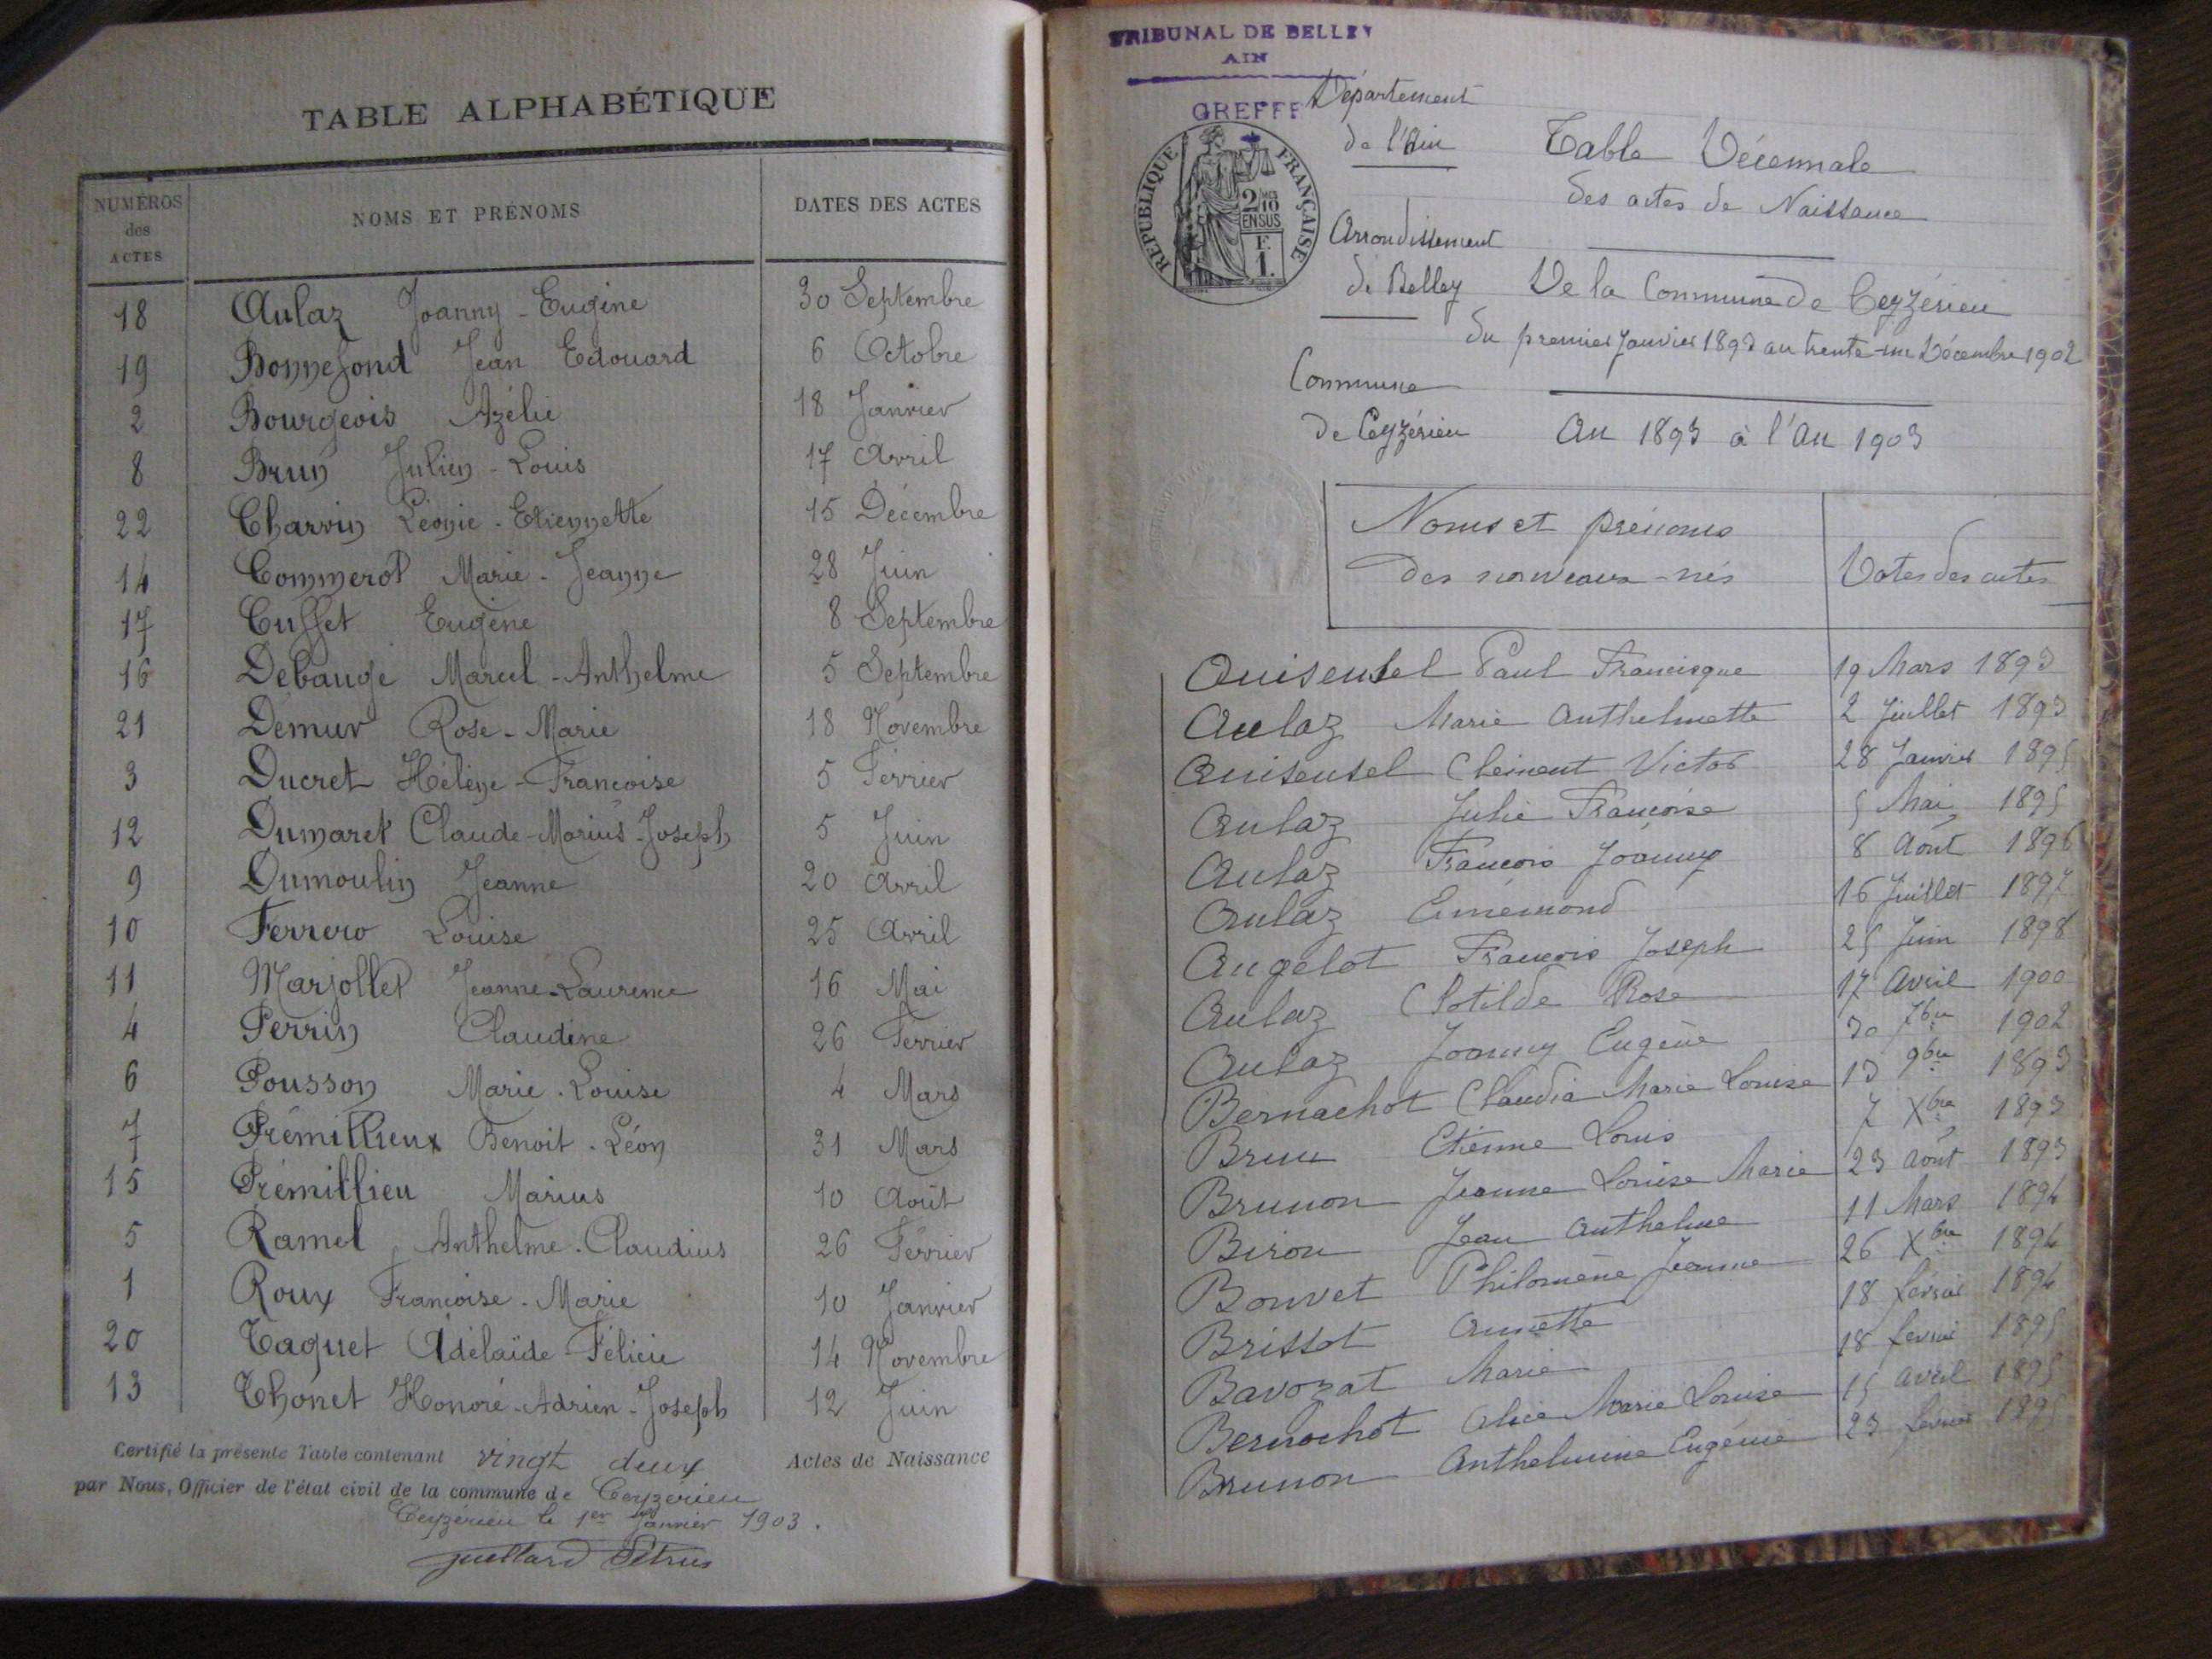 TABLE ALPHABÉTIQUE
NUMÉROS des ACTES
NOMS ET PRÉNOMS
DATES DES ACTES
18 Aulaz Joanny - Eugène 30 Septembre
19 Bonnefond Jean Edouard 6 Octobre
2 Bourgeois Azélie 18 Janvier
8 Brun Julien - Louis 17 Avril
22 Charvin Léonie - Etiennette 15 Décembre
14 Commerot Marie - Jeanne 28 Juin
17 Cuffet Eugène 8 Septembre
16 Debauge Marcel - Anthelme 5 Septembre
21 Demur Rose - Marie 18 Novembre
3 Ducret Hélène - Françoise 5 Février
12 Dumaret Claude - Marius - Joseph 5 Juin
9 Dumoulin Jeanne 20 Avril
10 Ferrero Louise 25 Avril
11 Marjollet Jeanne - Laurence 16 Mai
4 Perrin Claudine 26 Février
6 Pousson Marie - Louise 4 Mars
7 Prémillieux Benoit - Léon 31 Mars
15 Prémillieu Marius 10 Août
5 Ramel Anthelme - Claudius 26 Février
1 Roux Françoise - Marie 10 Janvier
20 Taquet Adélaïde - Félicie 14 Novembre
13 Thonet Honoré - Adrien - Joseph 12 Juin
Certifié la présente Table contenant vingt deux Actes de Naissance
par Nous, Officier de l'état civil de la commune de Ceyzérieu
Ceyzérieu le 1er Janvier 1903.
Juillard Pétrus
TRIBUNAL DE BELLEY
AIN
GREFFE
RÉPUBLIQUE FRANÇAISE
2/10
EN SUS
F.
1.
Département
de l'Ain
Arrondissement
de Belley
Commune
de Ceyzérieu
Table Décennale
des actes de Naissance
De la Commune de Ceyzérieu
du premier Janvier 1893 au trente-un Décembre 1902
An 1893 à l'An 1903
Noms et prénoms
des nouveaux-nés
Dates des actes
Quisensel Paul Francisque 19 Mars 1893
Aulaz Marie Anthelmette 2 Juillet 1893
Quisensel Clément Victor 28 Janvier 1895
Aulaz Julie Françoise 5 Mai 1895
Aulaz François Joanny 8 Août 1896
Aulaz Ennemond 16 Juillet 1897
Angelot François Joseph 25 Juin 1898
Aulaz Clotilde Rose 17 Avril 1900
Aulaz Joanny Eugène 30 7bre 1902
Bernachot Claudia Marie Louise 13 9bre 1893
Brun Etienne Louis 7 Xbre 1893
Brunon Jeanne Louise Marie 23 Août 1893
Biron Jean Anthelme 11 Mars 1894
Bouvet Philomène Jeanne 26 Xbre 1894
Brissot Annette 18 février 1894
Bavozat Marie 18 février 1895
Bernachot Alice Marie Louise 15 Avril 1895
Brunon Anthelmine Eugénie 23 février 1895